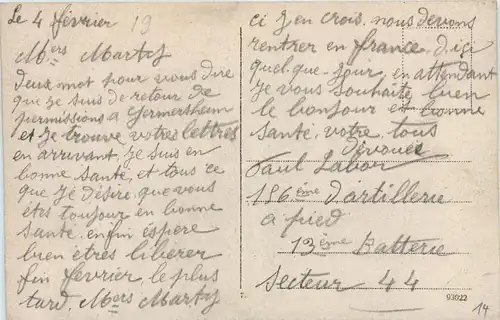 Le 4 février 19
Mers Martzf
Deux mot pour vous dire
que je suis de retour de
permissions a Germersheim
et Je trouve votres lettres
en arrivant Je suis en
bonne santé, et tous ce
que Je désire, que vous
étes toujour en bonne
santé enfin espere
bien étres libérer
fin fevrier, le plus
tard, Mers Martzf
ci J'en crois, nous devons
rentrer en france, d'içi
quel-que-Jour, en attendant
Je vous souhaite, bien
le bonjour et bonne
santé, votre tous
dévoué
Paul
186ème d'artillerie
a pied
13ème Batterie
Secteur 44
7. 93022
14